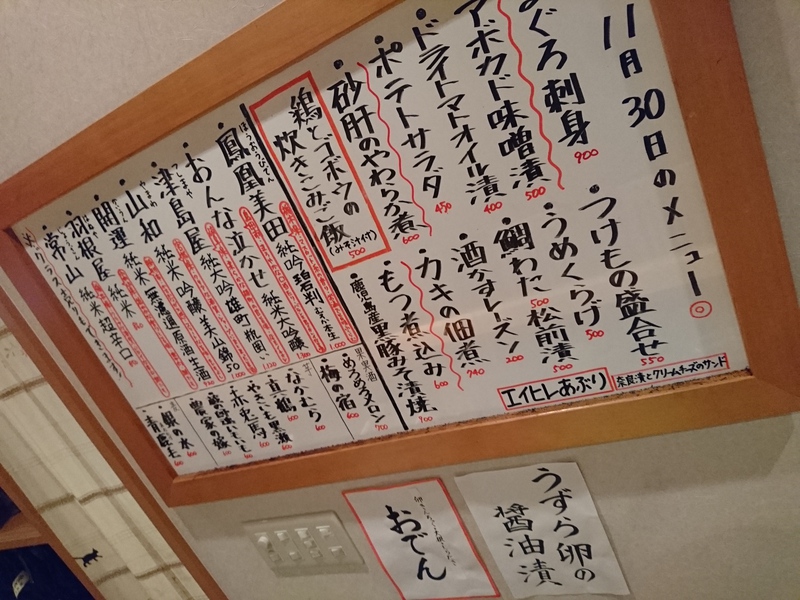 11月30日のメニュー
まぐろ刺身 900
アボカド味噌漬 500
・ドライトマトオイル漬 400
・ポテトサラダ 450
・砂肝のやわらか煮 600
鶏とゴボウの
炊きこみご飯
(みそ汁付) 500
・つけもの盛合せ 550
・うめくらげ 500
・鯛わた 500
松前漬 500
・酒かすレーズン 200
・カキの佃煮
・もつ煮込み 600
・鹿児島産黒豚みそ漬焼 900
エイヒレあぶり
奈良漬とクリームチーズのサンド
鳳凰美田 ほうおうびでん
純吟碧判
純米大吟醸
おんな泣かせ
純吟雄町
津島屋 つしまや
純米吟醸 美山錦50
山和
純米
無濾過原酒生酒
開運
純米
羽根屋
純米超辛口
常山
果実酒
めろめろメロン 700
梅の宿 600
なかむら 600
百鶴 600
やきいも黒瀬
赤兎馬
農家の嫁
銀の水
うずら卵の
醤油漬
おでん